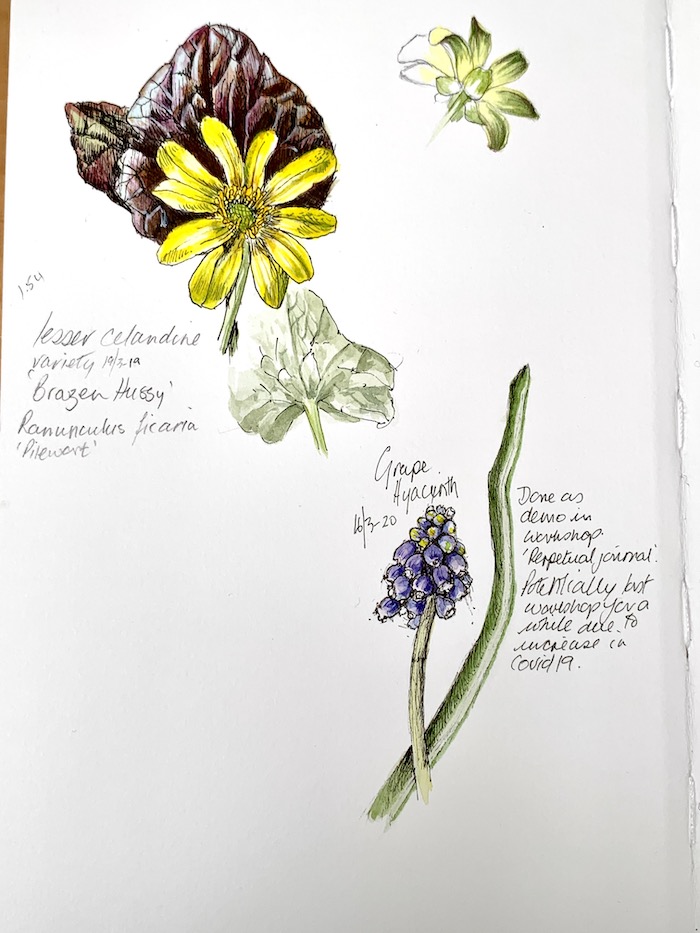 1.54
lesser celandine
variety 19/3-19
'Brazen Hussy'
Ranunculus ficaria
'Pilewort'
Grape
Hyacynth
16/3-20
Done as
demo in
workshop.
'Perpetual journal'.
Potentially last
workshop for a
while due to
increase in
Covid19.